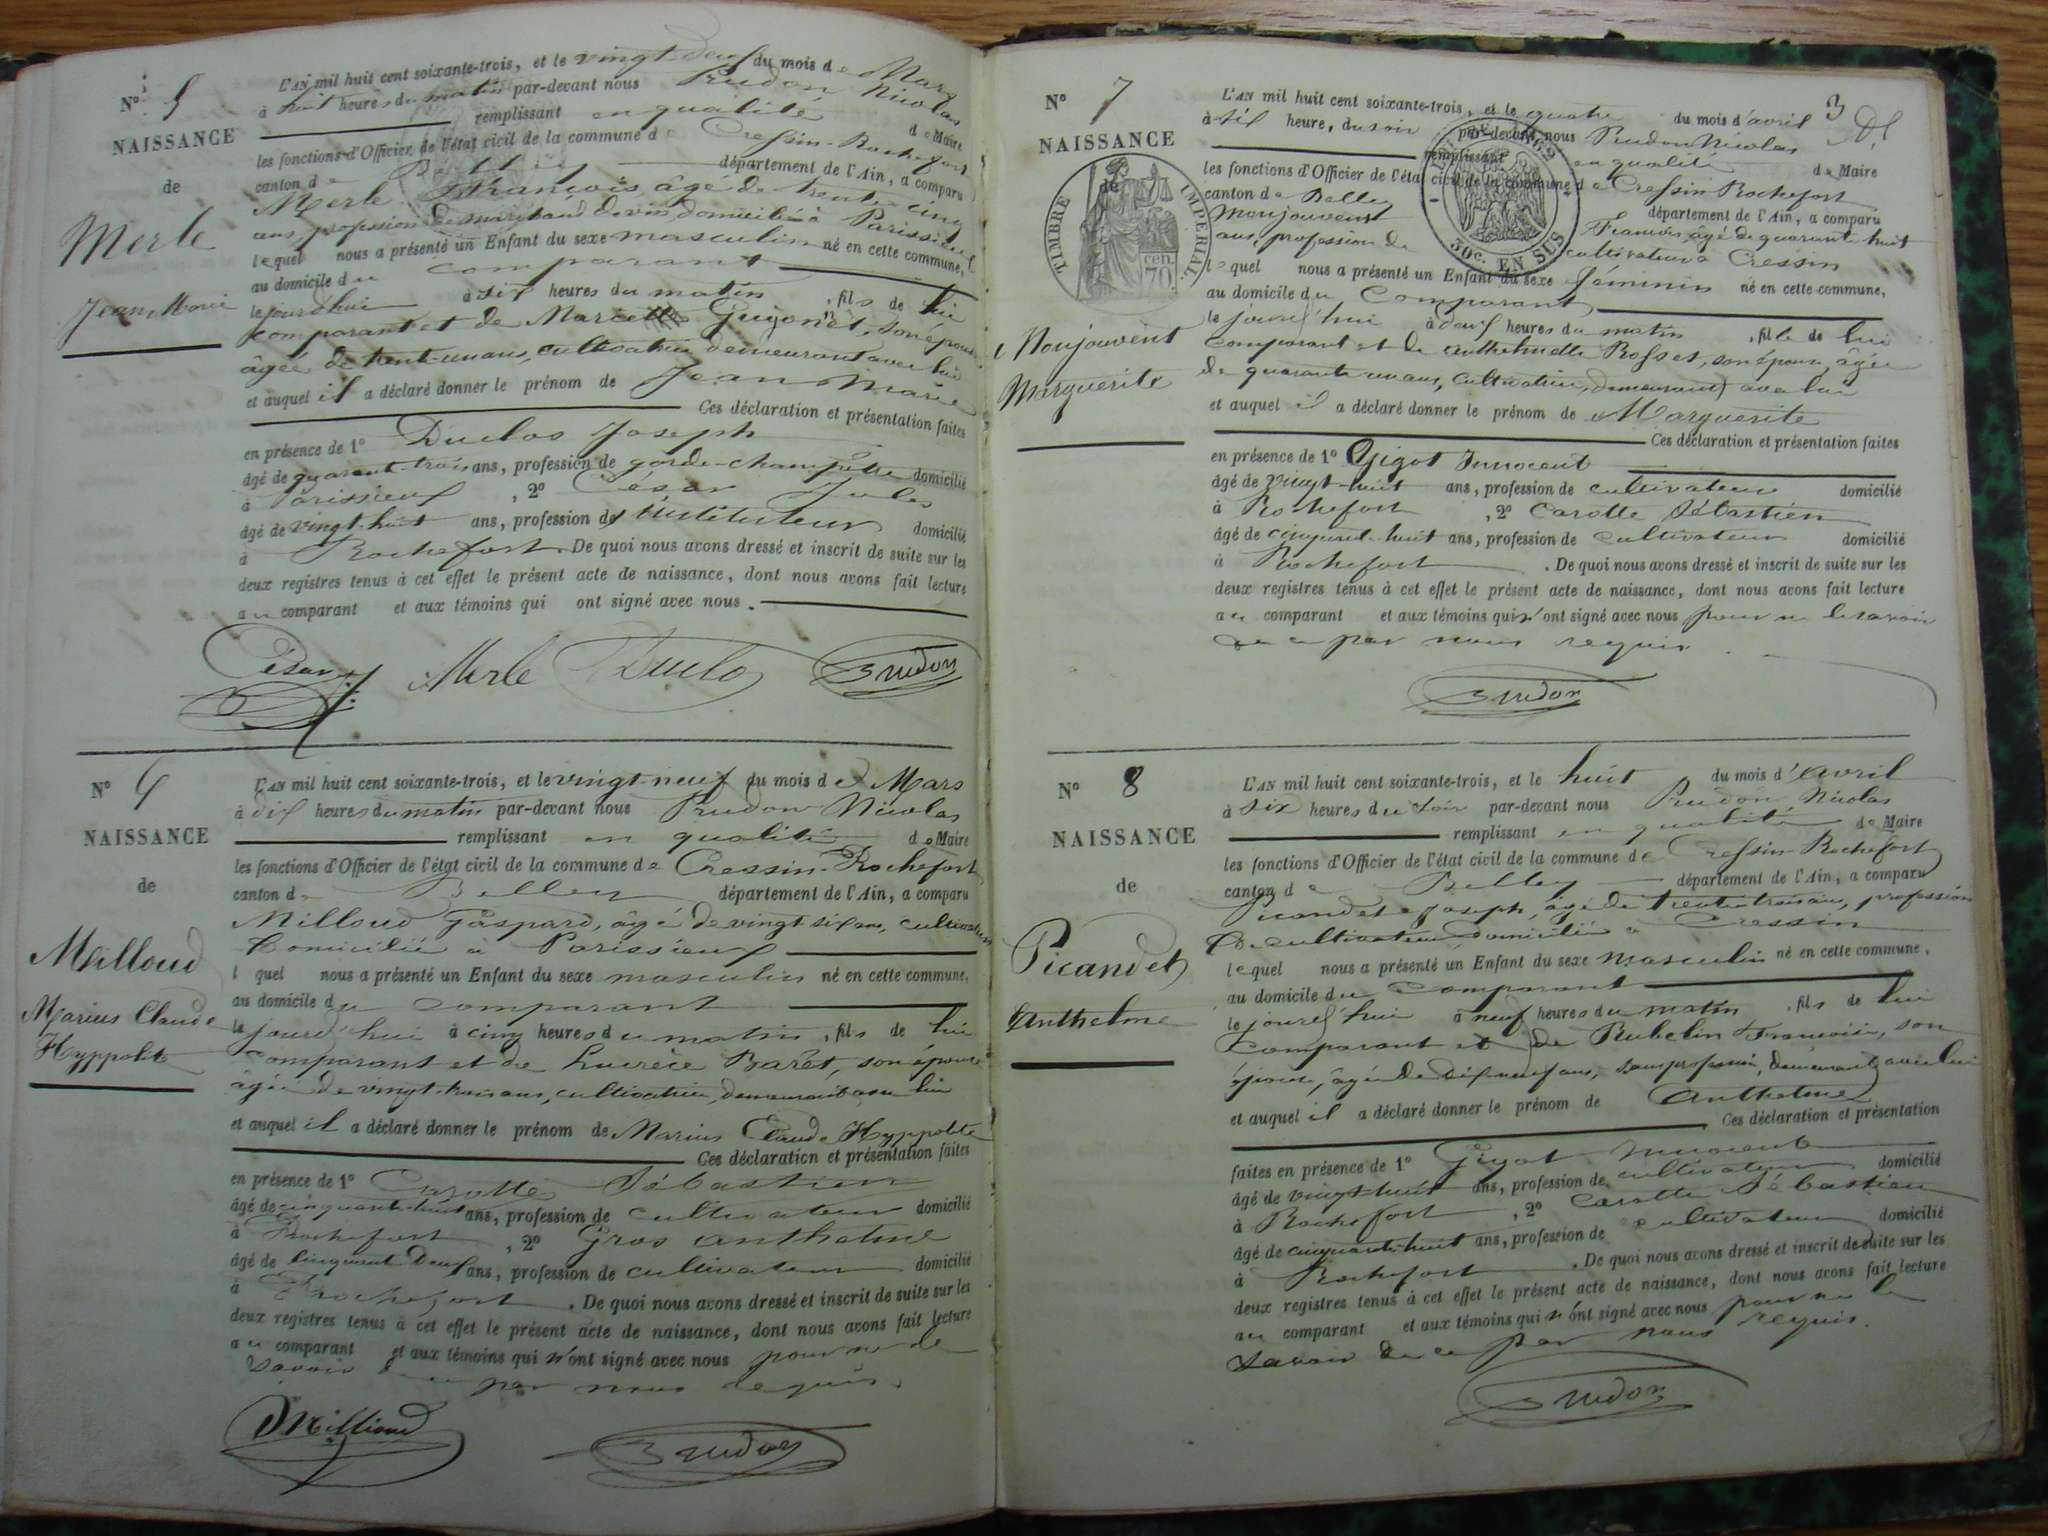 N° 5
NAISSANCE
de
Merle
Jean Marie
L'AN mil huit cent soixante-trois, et le vingt-deux du mois de Mars
à huit heures du matin par-devant nous Prudon Nicolas
remplissant en qualité de Maire
les fonctions d'Officier de l'état civil de la commune de Cressin-Rochefort
canton de Belley département de l'Ain, a comparu
Merle François âgé de trente cinq
ans, profession de marchand de vin domicilié à Parissieux
lequel nous a présenté un Enfant du sexe masculin né en cette commune,
au domicile du comparant
le jourd'hui à six heures du matin, fils de lui
comparant et de Marcelle Guigonet, son épouse
âgée de trente-un ans, cultivatrice demeurant avec lui
et auquel il a déclaré donner le prénom de Jean Marie
Ces déclaration et présentation faites
en présence de 1° Duclos Joseph
âgé de quarant-trois ans, profession de garde-champêtre domicilié
à Parissieux, 2° César Jules
âgé de vingt-huit ans, profession d'instituteur domicilié
à Rochefort. De quoi nous avons dressé et inscrit de suite sur les
deux registres tenus à cet effet le présent acte de naissance, dont nous avons fait lecture
au comparant et aux témoins qui ont signé avec nous.
César J. Merle Duclo Prudon
N° 6
NAISSANCE
de
Milloud
Marius Claude
Hyppolite
L'AN mil huit cent soixante-trois, et le vingt-neuf du mois de Mars
à dix heures du matin par-devant nous Prudon Nicolas
remplissant en qualité de Maire
les fonctions d'Officier de l'état civil de la commune de Cressin-Rochefort
canton de Belley département de l'Ain, a comparu
Milloud Gaspard, âgé de vingt six ans, cultivateur
domicilié à Parissieux
lequel nous a présenté un Enfant du sexe masculin né en cette commune,
au domicile du comparant
le jourd'hui à cinq heures du matin, fils de lui
comparant et de Lucrèce Barêt, son épouse
âgée de vingt-trois ans, cultivatrice, demeurant avec lui
et auquel il a déclaré donner le prénom de Marius Claude Hyppolite
Ces déclaration et présentation faites
en présence de 1° Carotte Sébastien
âgé de cinquante-huit ans, profession de cultivateur domicilié
à Rochefort, 2° Gros Anthelme
âgé de cinquante deux ans, profession de cultivateur domicilié
à Rochefort. De quoi nous avons dressé et inscrit de suite sur les
deux registres tenus à cet effet le présent acte de naissance, dont nous avons fait lecture
au comparant et aux témoins qui n'ont signé avec nous pour ne le
savoir de ce par nous requis.
Millioud Prudon
3
N° 7
NAISSANCE
de
TIMBRE IMPERIAL
cen. 70
50c. EN SUS
Monjouvent
Marguerite
L'AN mil huit cent soixante-trois, et le quatre du mois d'avril
à six heure, du soir par-devant nous Prudon Nicolas
remplissant en qualité de Maire
les fonctions d'Officier de l'état civil de la commune de Cressin Rochefort
canton de Belley département de l'Ain, a comparu
Monjouvent François âgé de quarante huit
ans, profession de cultivateur à Cressin
lequel nous a présenté un Enfant du sexe féminin né en cette commune,
au domicile du comparant
le jourd'hui à deux heures du matin, fille de lui
comparant et de Anthelmette Rosset, son épouse, âgée
de quarante un ans, cultivatrice, demeurant avec lui
et auquel il a déclaré donner le prénom de Marguerite
Ces déclaration et présentation faites
en présence de 1° Gigot Innocent
âgé de vingt-huit ans, profession de cultivateur domicilié
à Rochefort, 2° Carotte Sébastien
âgé de cinquant-huit ans, profession de cultivateur domicilié
à Rochefort. De quoi nous avons dressé et inscrit de suite sur les
deux registres tenus à cet effet le présent acte de naissance, dont nous avons fait lecture
au comparant et aux témoins qui n'ont signé avec nous pour ne le savoir
de ce par nous requis
Prudon
N° 8
NAISSANCE
de
Picandet
Anthelme
L'AN mil huit cent soixante-trois, et le huit du mois d'avril
à six heures du soir par-devant nous Prudon, Nicolas
remplissant en qualité de Maire
les fonctions d'Officier de l'état civil de la commune de Cressin Rochefort
canton de Belley département de l'Ain, a comparu
Picandet Joseph, âgé de trente trois ans, profession
de cultivateur, domicilié à Cressin
lequel nous a présenté un Enfant du sexe masculin né en cette commune,
au domicile du comparant
le jourd'hui à neuf heures du matin, fils de lui
comparant et de Rubelin Françoise, son
épouse, âgée de dix neuf ans, sans profession, demeurant avec lui
et auquel il a déclaré donner le prénom de Anthelme
Ces déclaration et présentation
faites en présence de 1° Gigot Innocent
âgé de vingt-huit ans, profession de cultivateur domicilié
à Rochefort, 2° Carotte Sébastien
âgé de cinquante-huit ans, profession de cultivateur domicilié
à Rochefort. De quoi nous avons dressé et inscrit de suite sur les
deux registres tenus à cet effet le présent acte de naissance, dont nous avons fait lecture
au comparant et aux témoins qui n'ont signé avec nous pour ne le
savoir de ce par nous requis.
Prudon